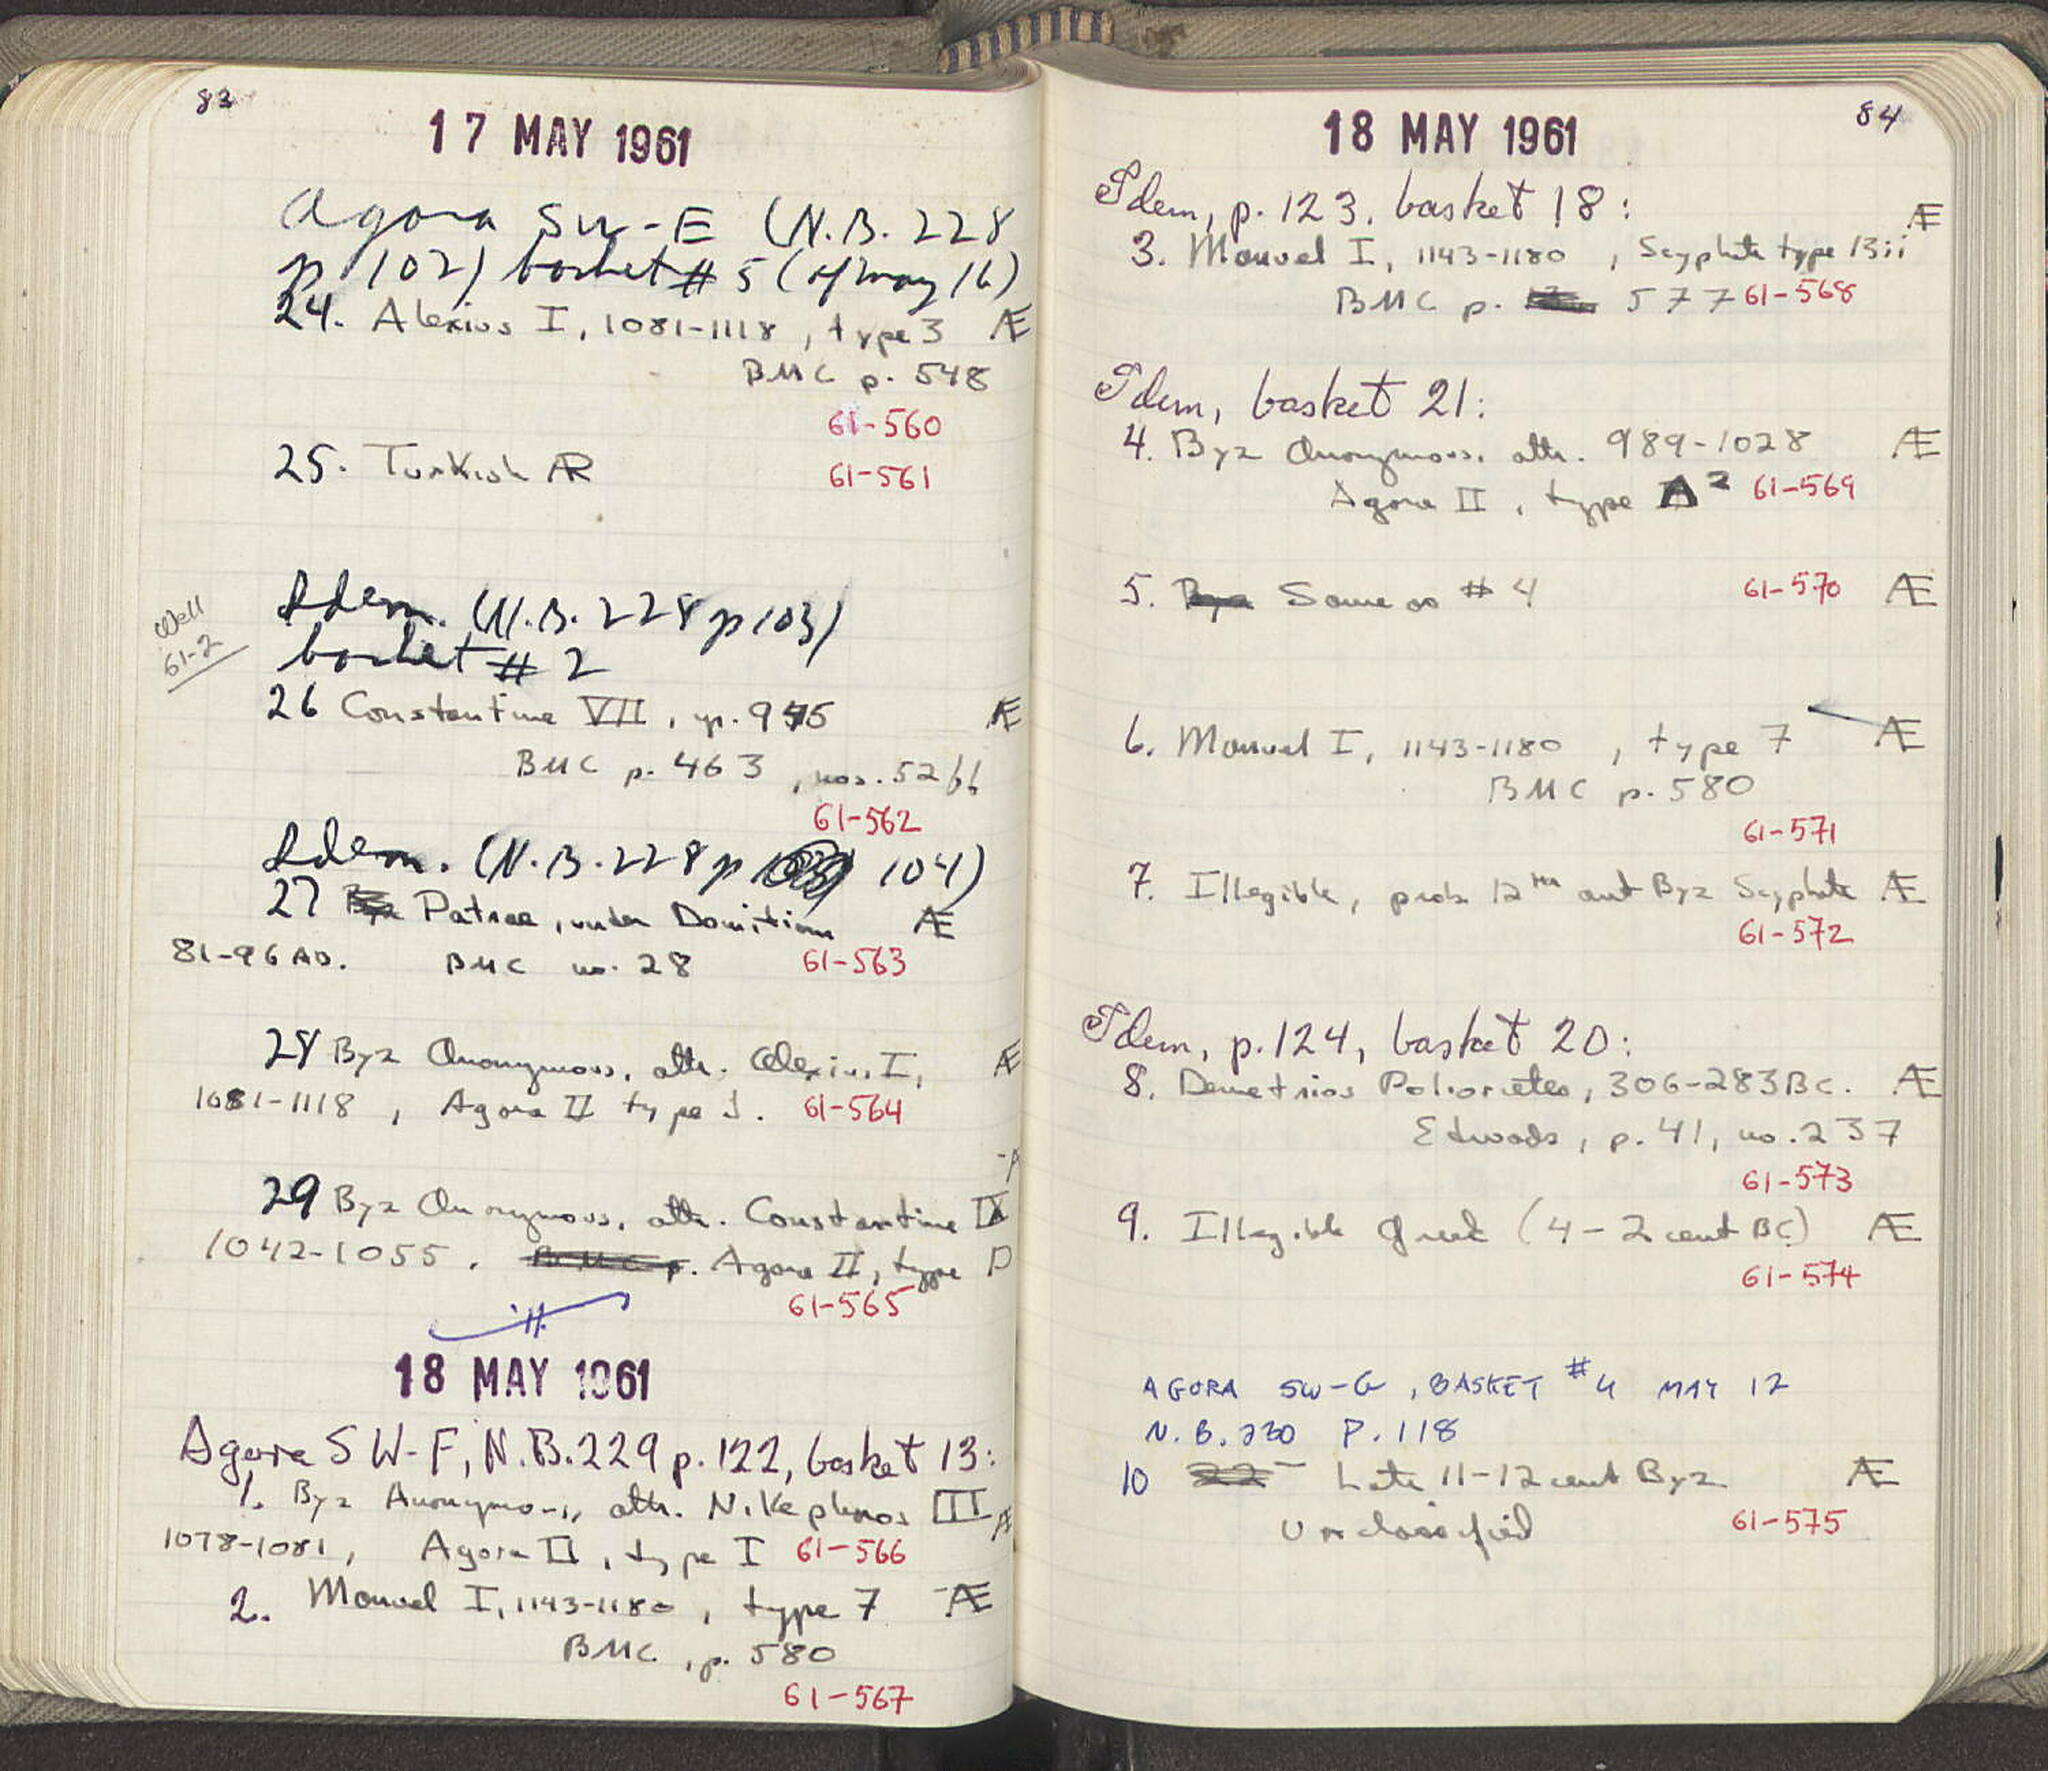 83
17 MAY 1961
Agora SW-E (N.B. 228
p 102) basket # 5 (of May 16)
24. Alexius I, 1081-1118, type 3 Æ
BMC p. 548
61-560
25. Turkish AR 61-561
Well
61-2
Idem. (N.B. 228 p 103)
basket # 2
26 Constantine VII, 945 Æ
BMC p. 463, nos. 52 ff
61-562
Idem. (N.B. 228 p 104)
27 Patrae, under Domitian Æ
81-96 AD. BMC no. 28 61-563
28 Byz Anonymous, attr. Alexius I, Æ
1081-1118, Agora II type J. 61-564
29 Byz Anonymous, attr. Constantine IX
1042-1055. Agora II, type D
61-565
18 MAY 1961
Agora SW-F, N.B. 229 p. 122, basket 13:
1. Byz Anonymous, attr. Nikephoros III Æ
1078-1081, Agora II, type I 61-566
2. Manuel I, 1143-1180, type 7 Æ
BMC, p. 580
61-567
84
18 MAY 1961
Idem, p. 123, basket 18:
3. Manuel I, 1143-1180, Scyphate type 13ii Æ
BMC p. 577 61-568
Idem, basket 21:
4. Byz Anonymous, attr. 989-1028 Æ
Agora II, type A² 61-569
5. Same as # 4 61-570 Æ
6. Manuel I, 1143-1180, type 7 Æ
BMC p. 580
61-571
7. Illegible, prob. 12th cent Byz Scyphate Æ
61-572
Idem, p. 124, basket 20:
8. Demetrios Poliorcetes, 306-283 BC. Æ
Edwards, p. 41, no. 237
61-573
9. Illegible Greek (4-2 cent BC) Æ
61-574
AGORA SW-G, BASKET #4 MAY 12
N.B. 230 P. 118
10 Late 11-12 cent Byz Æ
Unclassified 61-575